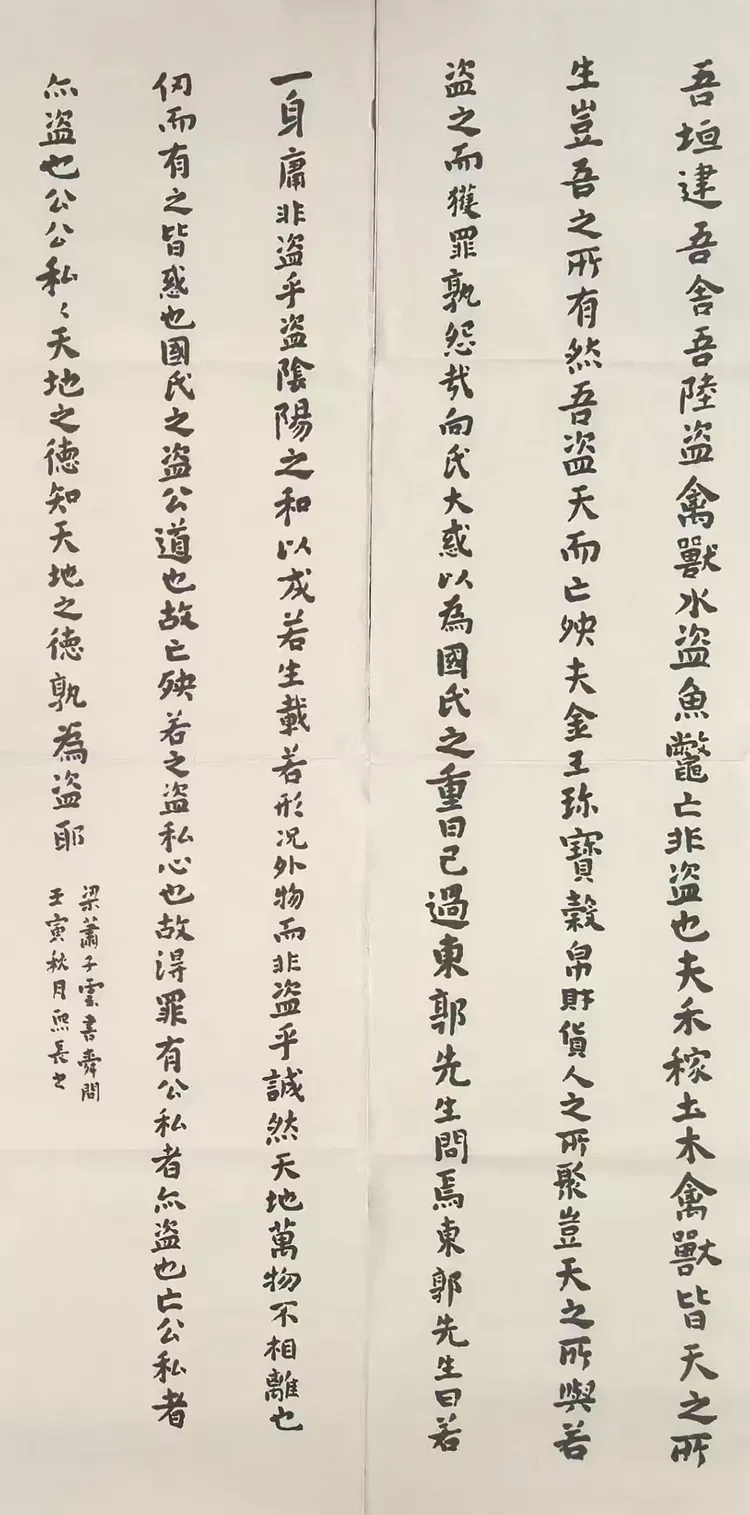 吾垣建吾舍吾陸盗禽獸水盗魚鼈亡非盗也夫禾稼土木禽獸皆天之所
生豈吾之所有然吾盗天而亡殃夫金玉珎寶穀帛財貨人之所聚豈天之所與若
盗之而獲罪孰怨哉向氏大惑以為國氏之重曰己過東郭先生問焉東郭先生曰若
一身庸非盗乎盗陰陽之和以成若生載若形况外物而非盗乎誠然天地萬物不相離也
仞而有之皆惑也國氏之盗公道也故亡殃若之盗私心也故得罪有公私者亦盗也亡公私者
亦盗也公公私〻天地之德知天地之德孰為盗耶
梁蕭子雲書舜問
壬寅秋月熙長書